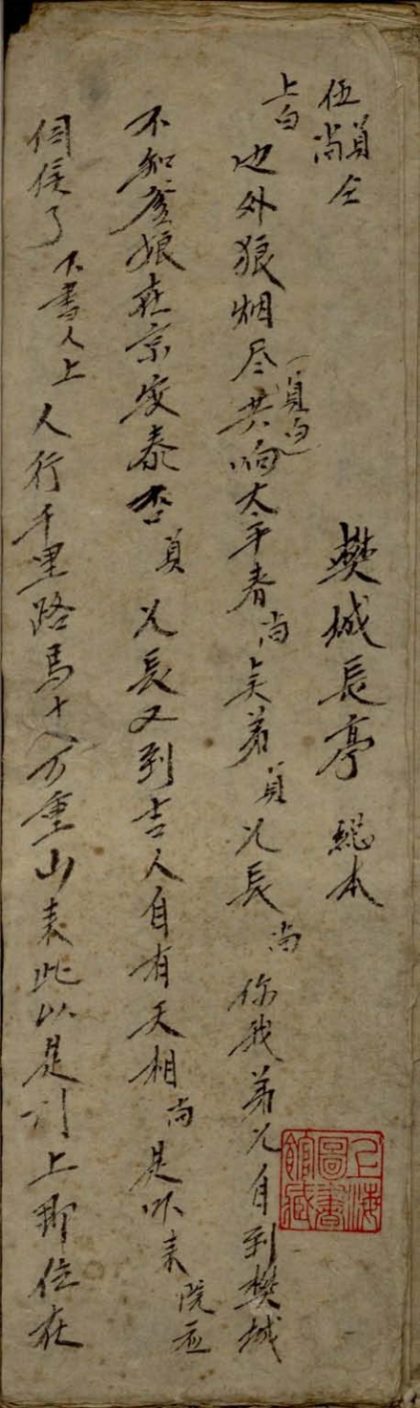 樊城長亭 總本
伍員尚仝上白
边外狼烟尽（員白）共响太平春尚吴弟員兄長尚你我弟兄自到樊城
不知爹娘在京安泰否員兄長又到吉人自有天相尚是吓来院应
伺侯了下書人上人行千里路馬十八万重山来此以是门上那位在
上海圖書館藏